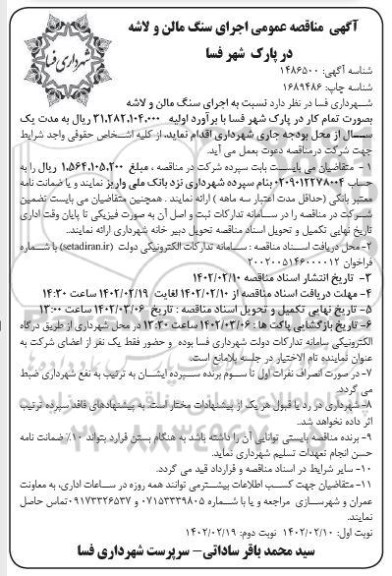 آگهی مناقصه عمومی اجرای سنگ مالن و لاشه
در پارک شهر فسا
شهرداری فسا
شناسه آگهی: ۱۴۸۶۵۰۰
شناسه چاپ: ۱۶۸۹۴۸۶
شهرداری فسا در نظر دارد نسبت به اجرای سنگ مالن و لاشه
بصورت تمام کار در پارک شهر فسا با برآورد اولیه ۳۱,۲۸۲,۱۰۴,۰۰۰ ریال به مدت یک
سال از محل بودجه جاری شهرداری اقدام نماید. از کلیه اشخاص حقوقی واجد شرایط
جهت شرکت درمناقصه دعوت بعمل می آید.
۱- متقاضیان می بایست بابت سپرده شرکت در مناقصه ، مبلغ ۱,۵۶۴,۱۰۵,۲۰۰ ریال را به
حساب ۰۲۰۹۰۱۲۲۷۸۰۰۴ بنام سپرده شهرداری نزد بانک ملی واریز نمایند و یا ضمانت نامه
معتبر بانکی (حداقل مدت اعتبار سه ماهه ) ارائه نمایند . همچنین متقاضیان می بایست تضمین
شرکت در مناقصه را در سامانه تدارکات ثبت و اصل آن به صورت فیزیکی تا پایان وقت اداری
تاریخ نهایی تکمیل و تحویل اسناد مناقصه تحویل دبیر خانه شهرداری ارائه نمایند..
۲-محل دریافت اسناد مناقصه : سامانه تدارکات الکترونیکی دولت (setadiran.ir) با شماره
فراخوان ۲۰۰۲۰۰۵۱۴۶۰۰۰۰۱۲
۳- تاریخ انتشار اسناد مناقصه ۱۴۰۲/۰۲/۱۰
۴- مهلت دریافت اسناد مناقصه از ۱۴۰۲/۰۲/۱۰ لغایت ۱۴۰۲/۰۲/۱۹ ساعت ۱۴:۳۰
۵- تاریخ نهایی تکمیل و تحویل اسناد مناقصه : تاریخ ۱۴۰۲/۰۳/۰۶ ساعت ۱۳:۰۰
۶- تاریخ بازگشایی پاکت ها : ۱۴۰۲/۰۳/۰۶ ساعت ۱۳:۳۰ در محل شهرداری از طریق درگاه
الکترونیکی سامانه تدارکات دولت شهرداری فسا بوده و حضور فقط یک نفر از اعضای شرکت به
عنوان نماینده تام الاختیار در جلسه بلامانع است.
۷- در صورت انصراف نفرات اول تا سوم برنده سپرده ایشان به ترتیب به نفع شهرداری ضبط
می گردد.
۸-شهرداری در رد یا قبول هر یک از پیشنهادات مختار است. به پیشنهادهای فاقد سپرده ترتیب
اثر داده نخواهد شد.
۹- برنده مناقصه بایستی توانایی آن را داشته باشد به هنگام بستن قرارداد بتواند ۱۰٪ ضمانت نامه
حسن انجام تعهدات تسلیم شهرداری نماید.
۱۰- سایر شرایط در اسناد مناقصه و قرارداد قید می گردد.
۱۱-متقاضیان جهت کسب اطلاعات بیشترمی توانند همه روزه در ساعات اداری، به معاونت
عمران و شهرسازی مراجعه و یا با شماره ۰۷۱۵۳۳۳۹۸۰۵ و ۰۹۱۷۳۳۲۶۵۳۷تماس حاصل
نمایند.
نوبت اول: ۱۴۰۲/۰۲/۱۰ نوبت دوم: ۱۴۰۲/۰۲/۱۹
سید محمد باقر ساداتی- سرپرست شهرداری فسا